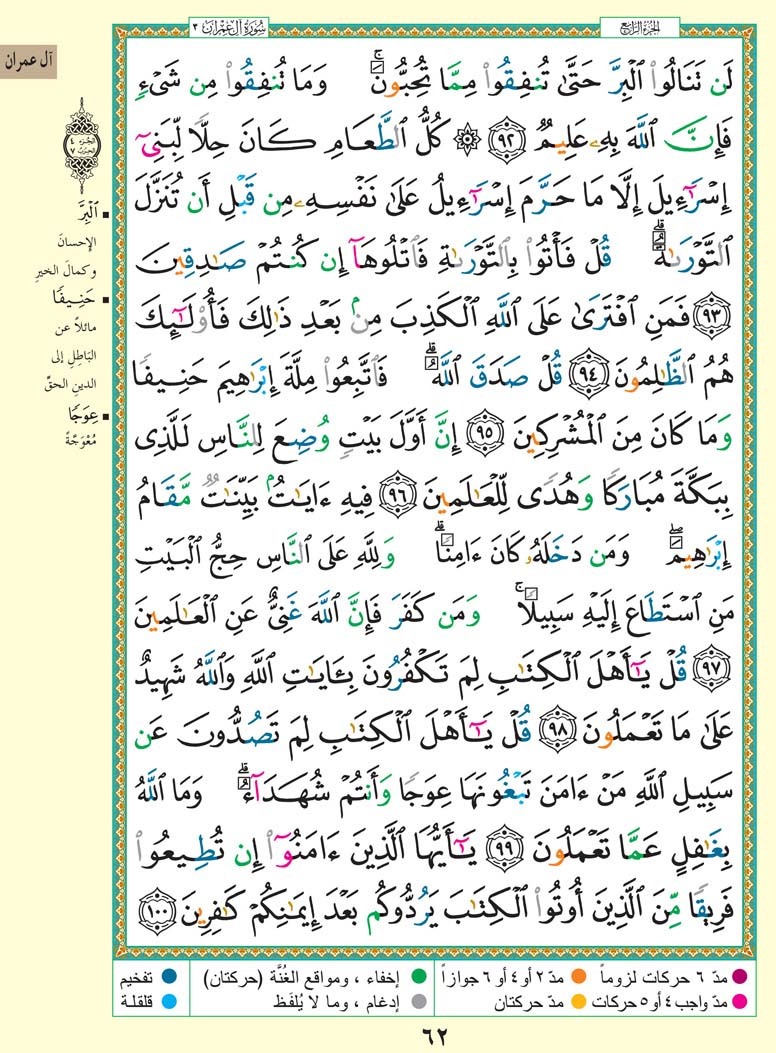 سُورَةُ آلِ عِمْرَان ٣
الجُزْءُ الرَّابِعُ
آل عمران
لَن تَنَالُوا۟ ٱلْبِرَّ حَتَّىٰ تُنفِقُوا۟ مِمَّا تُحِبُّونَ ۚ وَمَا تُنفِقُوا۟ مِن شَىْءٍ
فَإِنَّ ٱللَّهَ بِهِۦ عَلِيمٌ ٩٢ ۞ كُلُّ ٱلطَّعَامِ كَانَ حِلًّا لِّبَنِىٓ
إِسْرَٰٓءِيلَ إِلَّا مَا حَرَّمَ إِسْرَٰٓءِيلُ عَلَىٰ نَفْسِهِۦ مِن قَبْلِ أَن تُنَزَّلَ
ٱلتَّوْرَىٰةُ ۗ قُلْ فَأْتُوا۟ بِٱلتَّوْرَىٰةِ فَٱتْلُوهَآ إِن كُنتُمْ صَٰدِقِينَ
٩٣ فَمَنِ ٱفْتَرَىٰ عَلَى ٱللَّهِ ٱلْكَذِبَ مِنۢ بَعْدِ ذَٰلِكَ فَأُو۟لَٰٓئِكَ
هُمُ ٱلظَّٰلِمُونَ ٩٤ قُلْ صَدَقَ ٱللَّهُ ۗ فَٱتَّبِعُوا۟ مِلَّةَ إِبْرَٰهِيمَ حَنِيفًا
وَمَا كَانَ مِنَ ٱلْمُشْرِكِينَ ٩٥ إِنَّ أَوَّلَ بَيْتٍ وُضِعَ لِلنَّاسِ لَلَّذِى
بِبَكَّةَ مُبَارَكًا وَهُدًى لِّلْعَٰلَمِينَ ٩٦ فِيهِ ءَايَٰتٌۢ بَيِّنَٰتٌ مَّقَامُ
إِبْرَٰهِيمَ ۖ وَمَن دَخَلَهُۥ كَانَ ءَامِنًا ۗ وَلِلَّهِ عَلَى ٱلنَّاسِ حِجُّ ٱلْبَيْتِ
مَنِ ٱسْتَطَاعَ إِلَيْهِ سَبِيلًا ۚ وَمَن كَفَرَ فَإِنَّ ٱللَّهَ غَنِىٌّ عَنِ ٱلْعَٰلَمِينَ
٩٧ قُلْ يَٰٓأَهْلَ ٱلْكِتَٰبِ لِمَ تَكْفُرُونَ بِـَٔايَٰتِ ٱللَّهِ وَٱللَّهُ شَهِيدٌ
عَلَىٰ مَا تَعْمَلُونَ ٩٨ قُلْ يَٰٓأَهْلَ ٱلْكِتَٰبِ لِمَ تَصُدُّونَ عَن
سَبِيلِ ٱللَّهِ مَنْ ءَامَنَ تَبْغُونَهَا عِوَجًا وَأَنتُمْ شُهَدَآءُ ۗ وَمَا ٱللَّهُ
بِغَٰفِلٍ عَمَّا تَعْمَلُونَ ٩٩ يَٰٓأَيُّهَا ٱلَّذِينَ ءَامَنُوٓا۟ إِن تُطِيعُوا۟
فَرِيقًا مِّنَ ٱلَّذِينَ أُوتُوا۟ ٱلْكِتَٰبَ يَرُدُّوكُم بَعْدَ إِيمَٰنِكُمْ كَٰفِرِينَ ١٠٠
الجزء
٤
الحزب
٧
▪ ٱلْبِرَّ
الإحسانَ
وكمالَ الخيرِ
▪ حَنِيفًا
مائلاً عن
البَاطِلِ إلى
الدين الحقِّ
▪ عِوَجًا
مُعْوَجَّةً
مدّ ٦ حركات لزوماً
مدّ ٢ أو ٤ أو ٦ جوازاً
إخفاء ، ومواقع الغُنَّة (حركتان)
تفخيم
مدّ واجب ٤ أو ٥ حركات
مدّ حركتان
إدغام ، وما لا يُلفَظ
قلقلة
٦٢